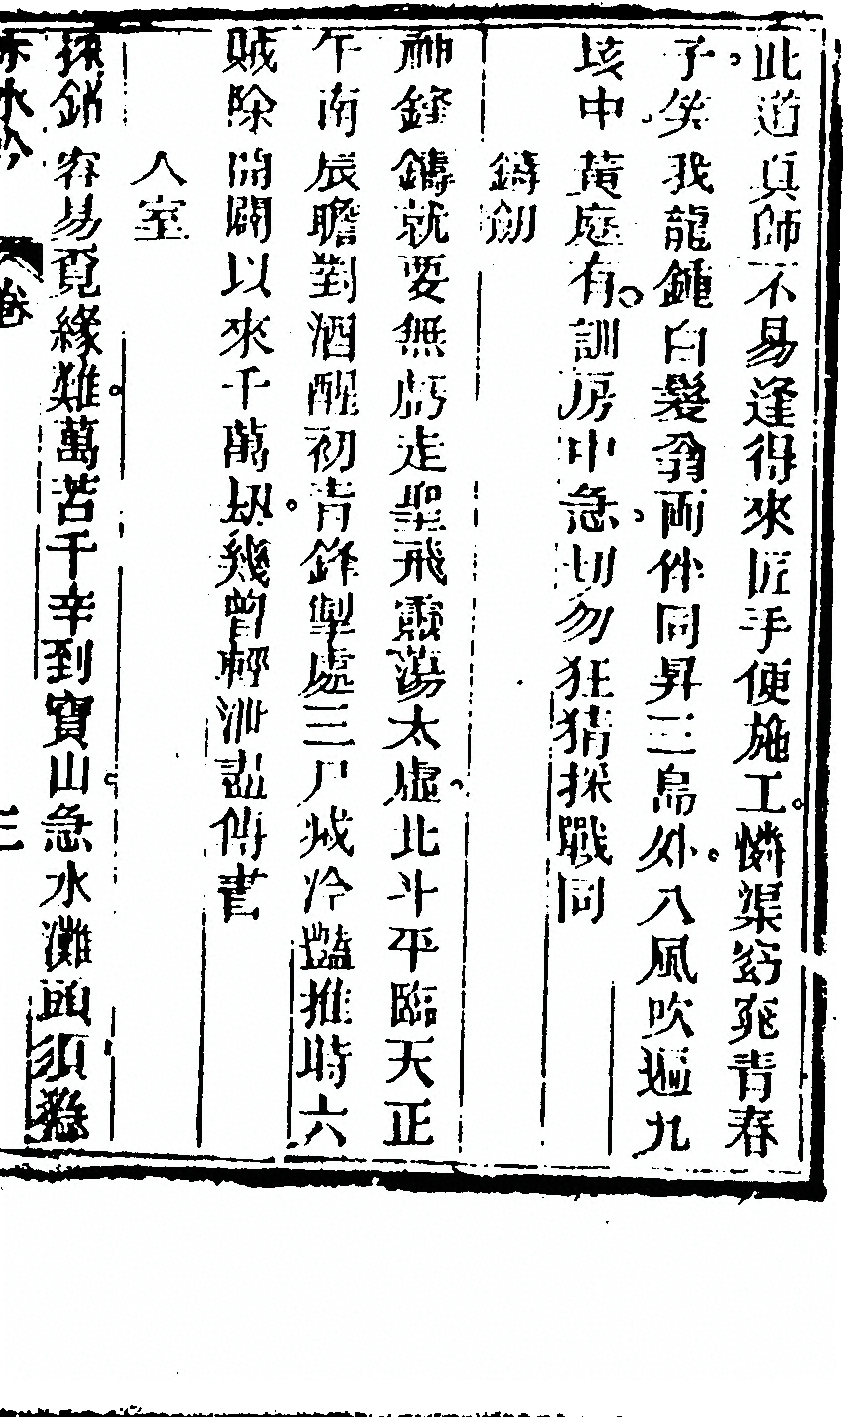 此道真師不易逢得來匠手便施工憐渠窈窕青春
子笑我龍鍾白髮翁兩件同昇三島外八風吹遍九
垓中黃庭有訓房中急切勿狂猜採戰同
鑄劒
神鋒鑄就要無虧走聖飛靈蕩太虛北斗平臨天正
午南辰瞻對酒醒初青鋒掣處三尸滅冷豔推時六
賊除開闢以來千萬刼幾曾輕泄盡傳書
入室
採鉛容易覓緣難萬苦千辛到寶山急水灘頭須
赤水吟
卷
三